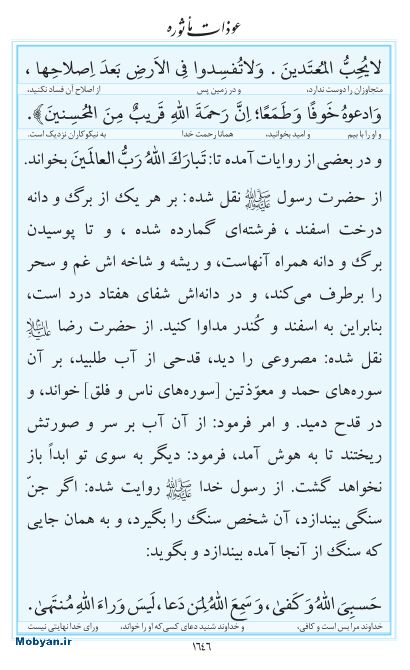 عوذات مأثوره
لايُحِبُّ المُعتَدينَ . وَلاتُفسِدوا فِى الاَرضِ بَعدَ اِصلاحِها ،
متجاوزان را دوست ندارد، و در زمین پس از اصلاح آن فساد نکنید،
وَادعوهُ خَوفًا وَطَمَعًا؛ اِنَّ رَحمَةَ اللهِ قَریبٌ مِنَ المُحسِنینَ﴾.
و او را با بیم و امید بخوانید، همانا رحمت خدا به نیکوکاران نزدیک است.
و در بعضی از روایات آمده تا: تَبارَكَ اللهُ رَبُّ العالَمینَ بخواند.
از حضرت رسول ﷺ نقل شده: بر هر یک از برگ و دانه
درخت اسفند ، فرشته‌ای گمارده شده ، و تا پوسیدن
برگ و دانه همراه آنهاست، و ریشه و شاخه اش غم و سحر
را برطرف می‌کند، و در دانه‌اش شفای هفتاد درد است،
بنابراین به اسفند و کُندر مداوا کنید. از حضرت رضا علیه‌السلام
نقل شده: مصروعی را دید، قدحی از آب طلبید، بر آن
سوره‌های حمد و معوّذتین [سوره‌های ناس و فلق] خواند، و
در قدح دمید. و امر فرمود: از آن آب بر سر و صورتش
ریختند تا به هوش آمد، فرمود: دیگر به سوی تو ابداً باز
نخواهد گشت. از رسول خدا ﷺ روایت شده: اگر جنّ
سنگی بیندازد، آن شخص سنگ را بگیرد، و به همان جایی
که سنگ از آنجا آمده بیندازد و بگوید:
حَسبِیَ اللهُ وَکَفیٰ، وَسَمِعَ اللهُ لِمَن دَعا، لَیسَ وَراءَ اللهِ مُنتَهیٰ.
خداوند مرا بس است و کافی، و خداوند شنید دعای کسی که او را خواند، ورای خدا نهایتی نیست
۱۶۴۶
Mobyan.ir